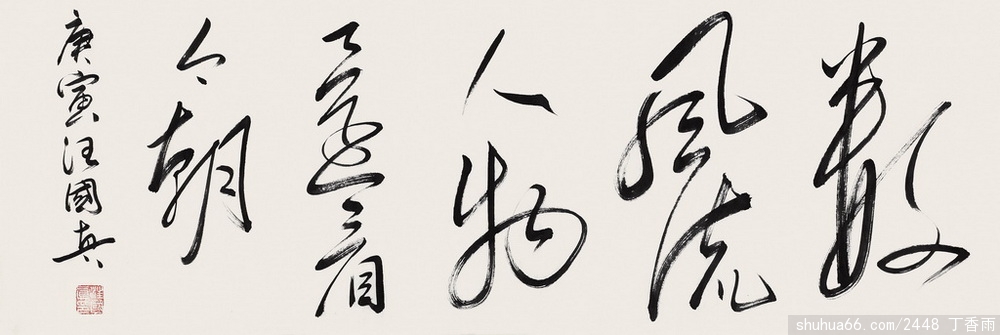 數
風流
人物
還看
今朝
庚寅汪國真
shuhua66.com/2448 丁香雨